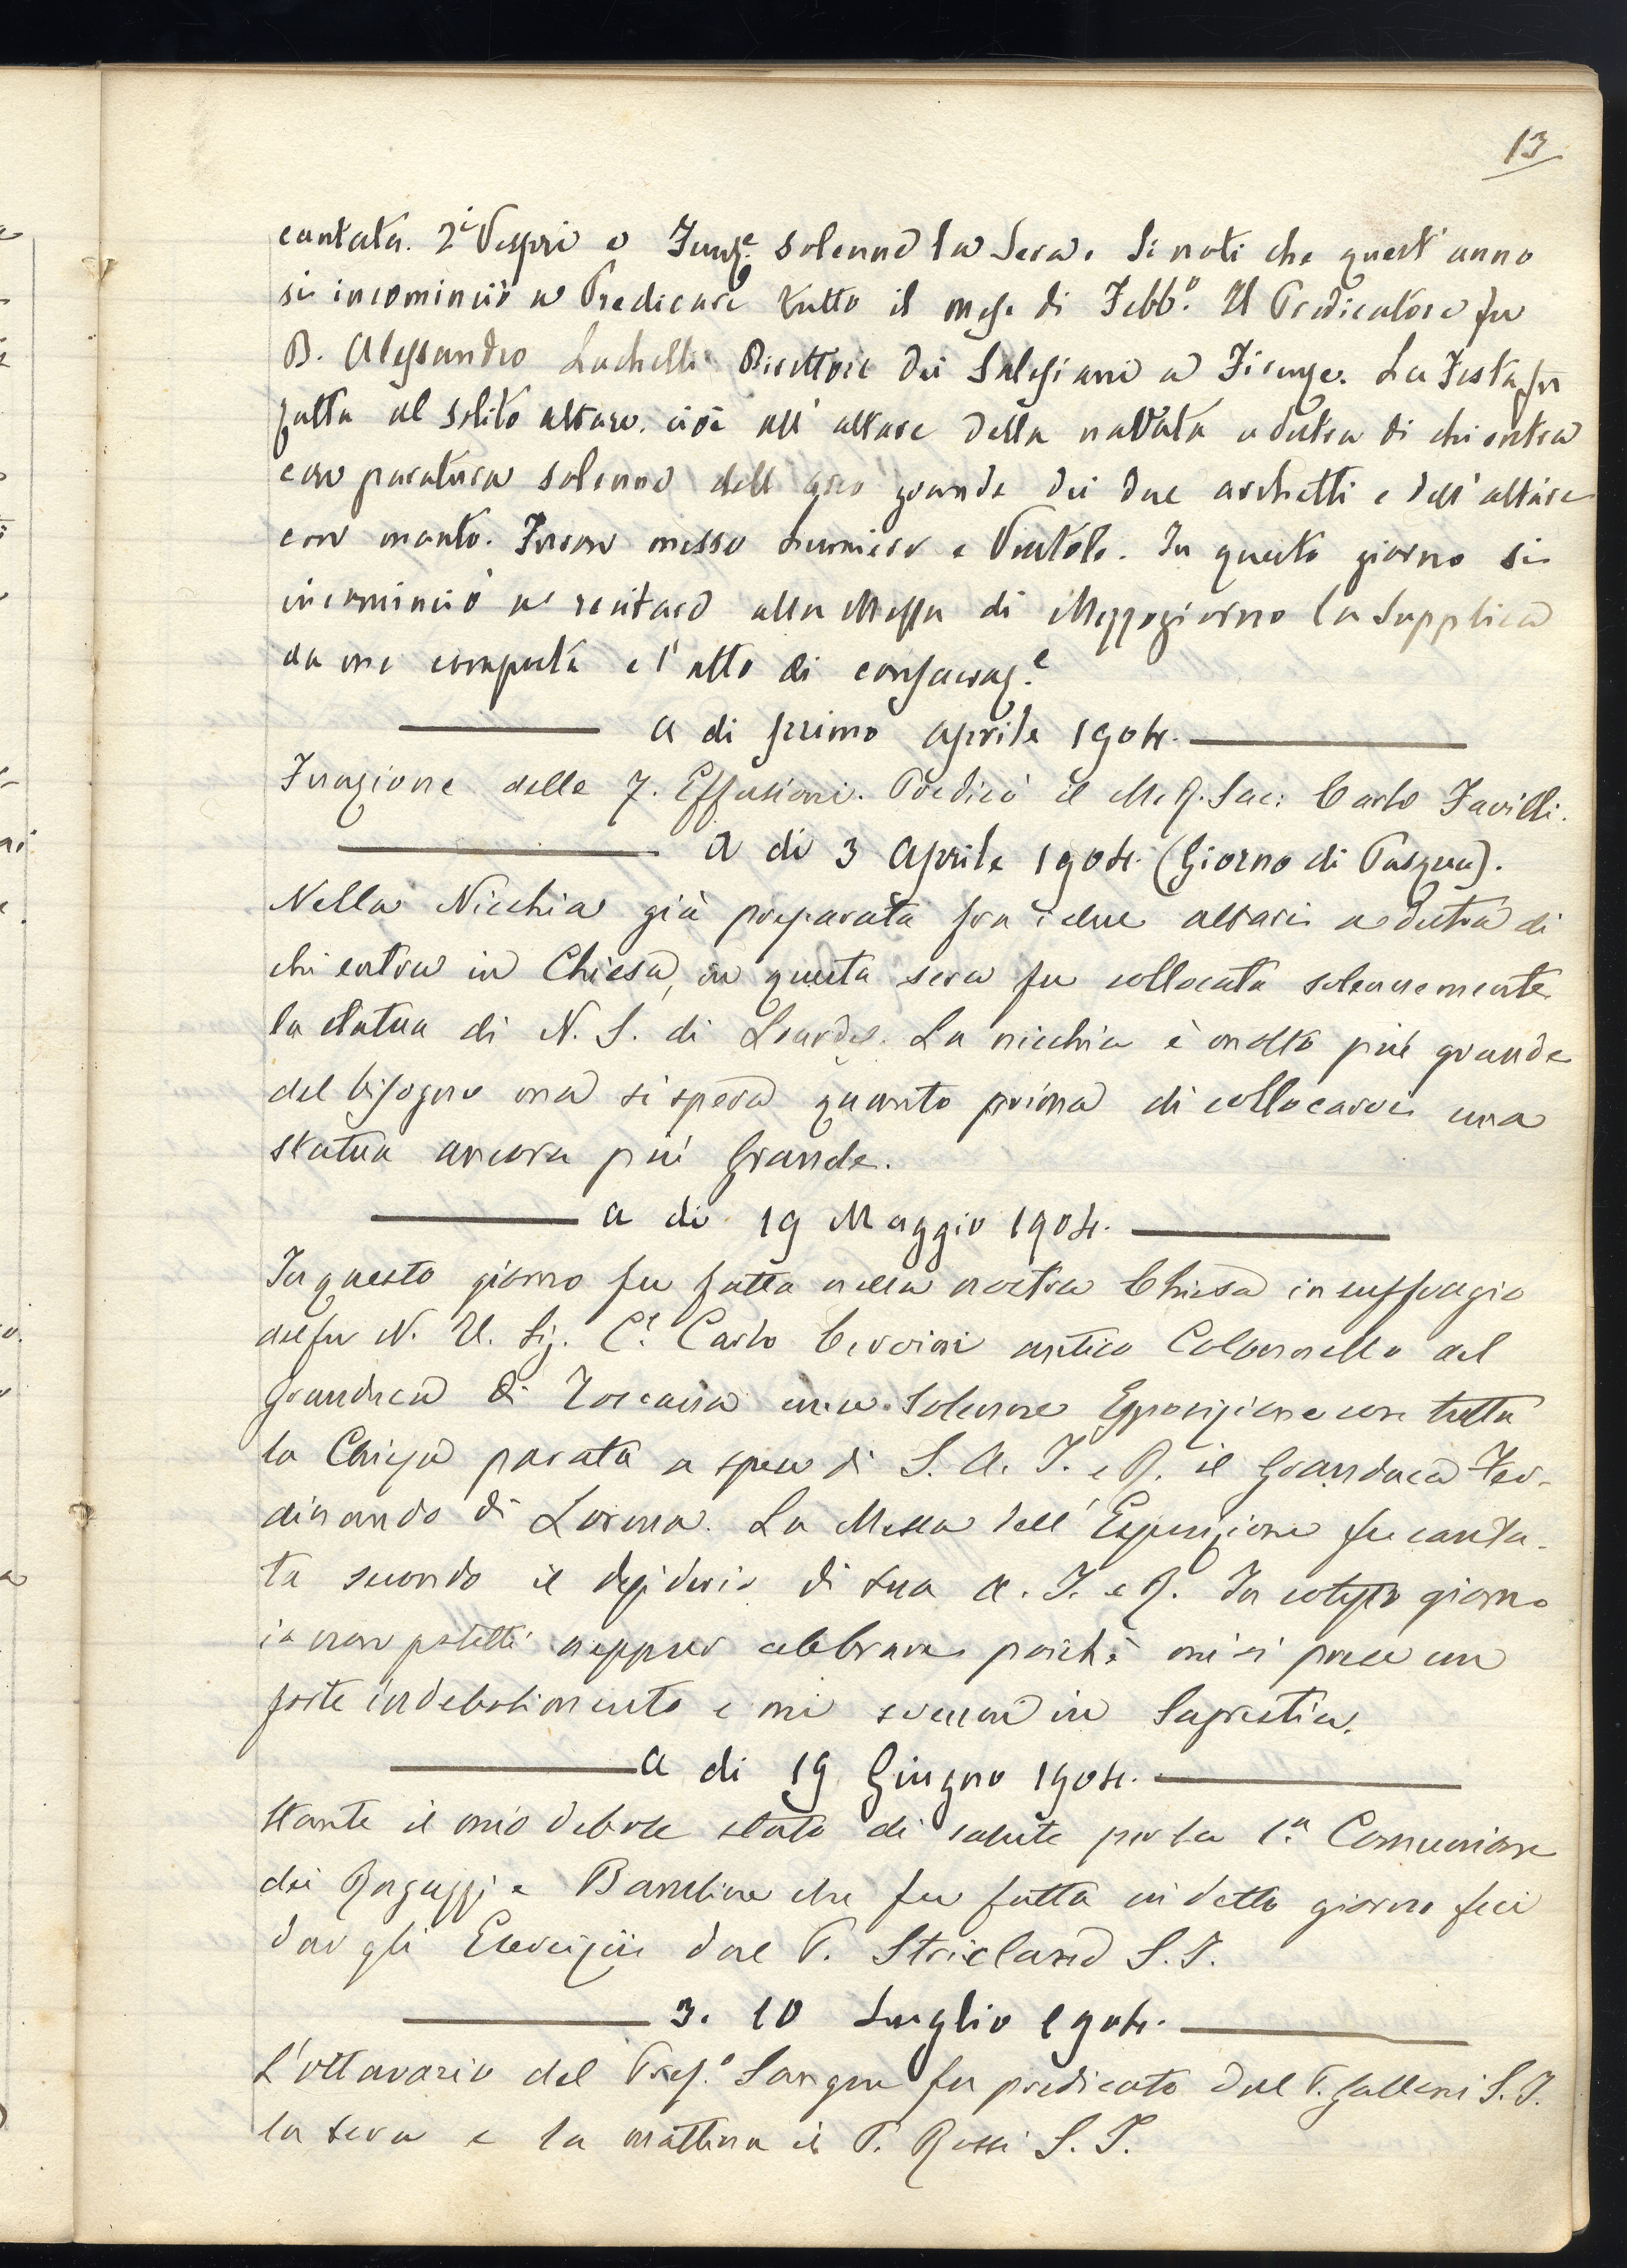 13
cantata. 2i Vespri e Funz.e solenne la Sera. Si noti che quest'anno
si incominciò a Predicare tutto il mese di Febb.o Il Predicatore fu
D. Alessandro Luchelli Direttore dei Salesiani a Firenze. La Festa fu
fatta al solito altare. cioè all'altare della navata a destra di chi entra
con paratura solenne dell'arco grande dei due archetti e dell'altare
con manto. Furon messe Lumiere e Ventole. In questo giorno si
incominciò a recitare alla Messa di Mezzogiorno la Supplica
da me composta e l'atto di consacraz.e
a di primo aprile 1904.
Funzione delle 7. Effusioni. Predicò il M. R. Sac: Carlo Favilli.
a di 3 aprile 1904. (Giorno di Pasqua).
Nella Nicchia già preparata fra i due altari a destra di
chi entra in Chiesa, in questa sera fu collocata solennemente
la statua di N. S. di Lourdes. La nicchia è molto più grande
del bisogno ma si spera quanto prima di collocarvi una
statua ancora più Grande.
a di 19 Maggio 1904.
In questo giorno fu fatta nella nostra Chiesa in suffragio
del fu N. U. Sig. C.e Carlo Cervini antico Colonnello del
Granduca di Toscana una solenne Esposizione con tutta
la Chiesa parata a spese di S. A. I. e R. il Granduca Fer-
dinando di Lorena. La Messa dell'Esposizione fu canta-
ta secondo il desiderio di sua A. I. e R. In cotesto giorno
io non potetti neppure celebrare poichè mi si prese un
forte indebolimento e mi svenni in Sagrestia.
a di 19 Giugno 1904.
Stante il mio debole stato di salute per la 1.a Comunione
dei Ragazzi e Bambine che fu fatta in detto giorno feci
dar gli Esercizii dal P. Stricland S. I.
3. 10 Luglio 1904.
L'ottavario del Prez.o Sangue fu predicato dal P. Galleni S. I.
la sera e la mattina il P. Rossi S. I.